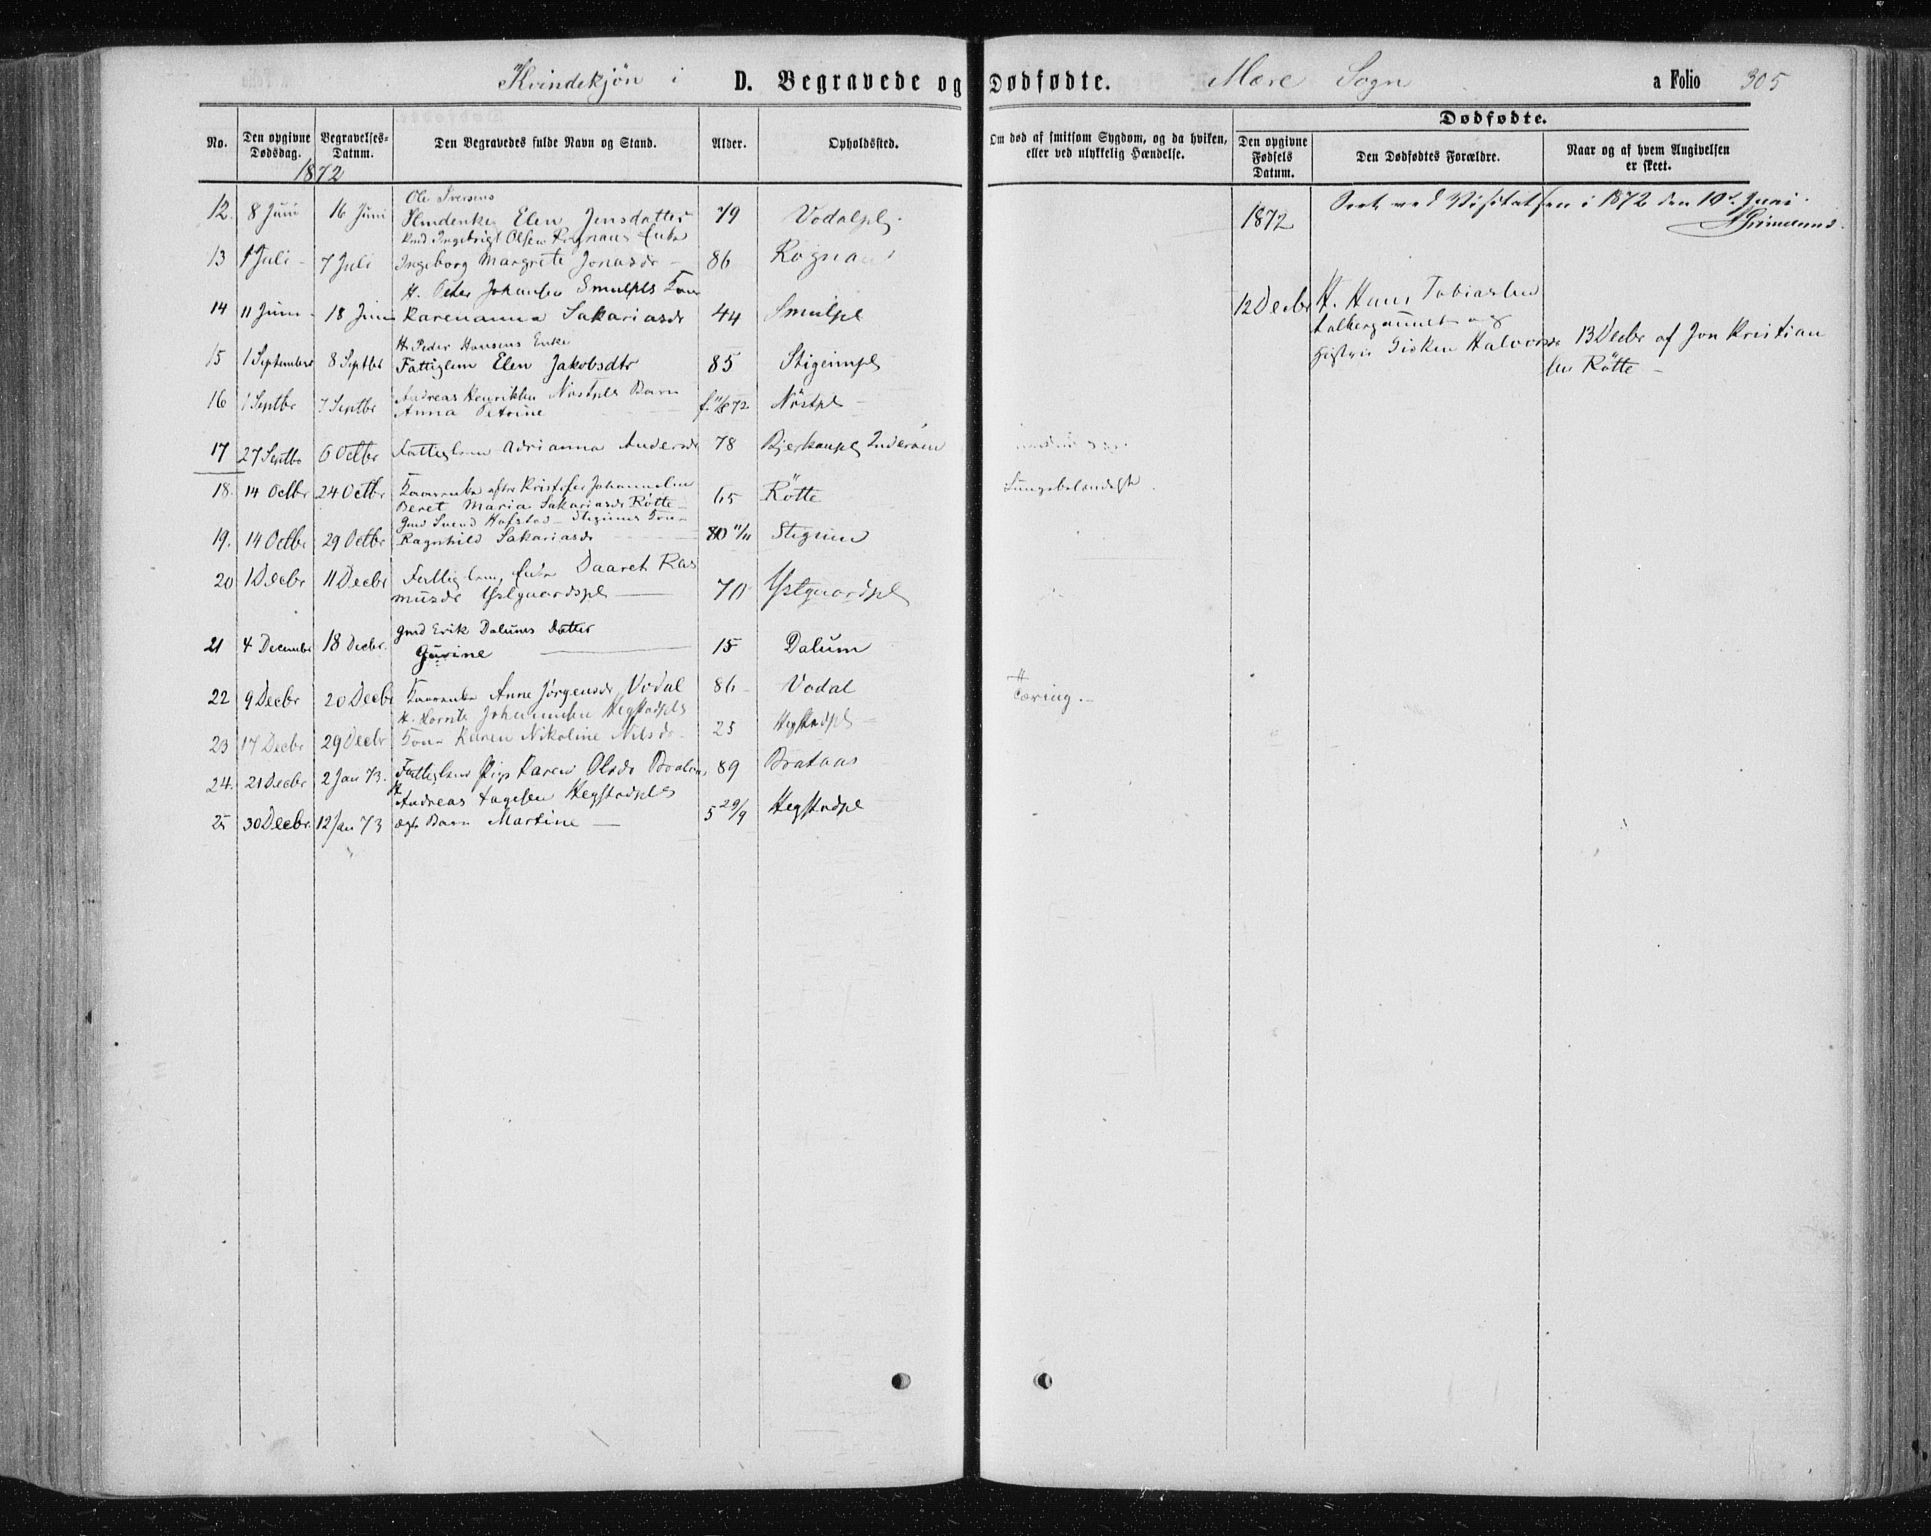 Kvindekjøn i D. Begravede og Dødfødte. Mære Sogn a Folio 305
No.
Den opgivne Dødsdag.
Begravelses-Datum.
Den Begravedes fulde Navn og Stand.
Alder.
Opholdssted.
Om død af smitsom Sygdom, og da hvilken, eller ved ulykkelig Hændelse.
Dødfødte.
Den opgivne Fødsels Datum.
Den Dødfødtes Forældre.
Naar og af hvem Angivelsen er skeet.
1872
Ole Iversens
12. 8 Juni 16 Juni Elen Jensdatter 79 Vodalpl.
Ingebrigt Olsen Rognans Enke
13 1 Juli 7 Juli Ingeborg Margrete Jonasdr 86 Rognan
H. Peter Johansen Smulpls Kone
14 11 Juni 18 Juni Karenanna Sakariasdr 44 Smulpl
H. Peder Hansens Enke
15 1 September 8 Septbr Fattiglem Elen Jakobsdtr 85 Stigeimpl
Andreas Henriksen Nøstpls Barn
16 1 Septbr 7 Septbr Anna Petrine Nøstpl
17 27 Septbr 6 Octbr Fattiglem Adrianna Andersdr 78 Inderøen
18. 14 Octbr 24 Octbr Kaarenke efter Kristofer Johannesen
Beret Maria Sakariasdr Røtte 65 Røtte Lungebetændelse.
Gmd Svend Hofstad Stigums Kone
19. 14 Octbr 29 Octbr Ragnhild Sakariasdr Stigum
20 1 Decbr 11 Decbr Fattiglem, Enke Daaret Ras
musdr Ystgaardspl 70 Ystgaardspl
Gmd Erik Dalums Datter
21 4 Decembr 18 Decbr. Gurine 15 Dalum
22 9 Decbr 20 Decbr Kaarenke Anne Jørgensdr Vodal 86 Vodal Tæring.
Johannesen Hegstadpls
23 17 Decbr 29 Decbr Kone Karen Nikoline Nilsdr 25 Hegstadpl
24. 21 Decbr 2 Jan 73. Fattiglem Pige Karen Olsdr Brataas 89 Brataas
H. Andreas Hegstadpls
25 30 Decbr. 12 Jan 73 ægte Barn Martine 5 29/9 Hegstadpl
1872 Seet ved Visitatsen i 1872 den 10de Juni.
12 Decbr H. Hans Tobiassen
og
Hustru Gisken Halvorsdr 13 Decbr af Jon Kristian
sen Røtte